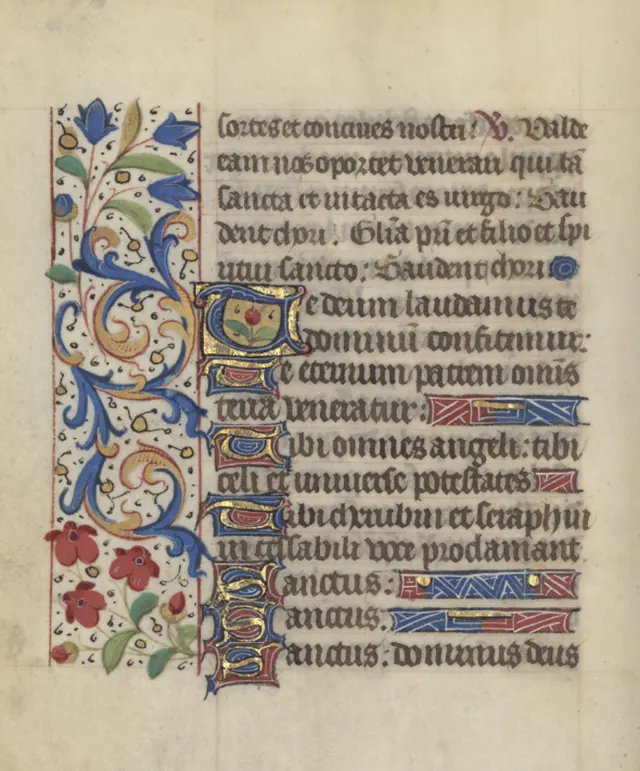 sortes et concives nostri. V. Valde
eam nos oportet venerari qui tā
sancta et intacta es uirgo: Gau
dent chori. Glīa pr̄i et filio et spi
ritui sancto: Gaudent chori
Te deum laudamus te
dominū confitemur:
Te eternum patrem omīs
terra veneratur:
Tibi omnes angeli: tibi
celi et universe potestates
Tibi cherubin et seraphin
incessabili voce proclamant
Sanctus:
Sanctus:
Sanctus: dominus deus